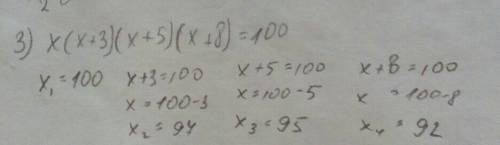 3) x(x+3)(x+5)(x+8)=100
x₁=100 x+3=100 x+5=100 x+8=100
x=100-3 x=100-5 x =100-8
x₂=94 x₃=95 x₄=92